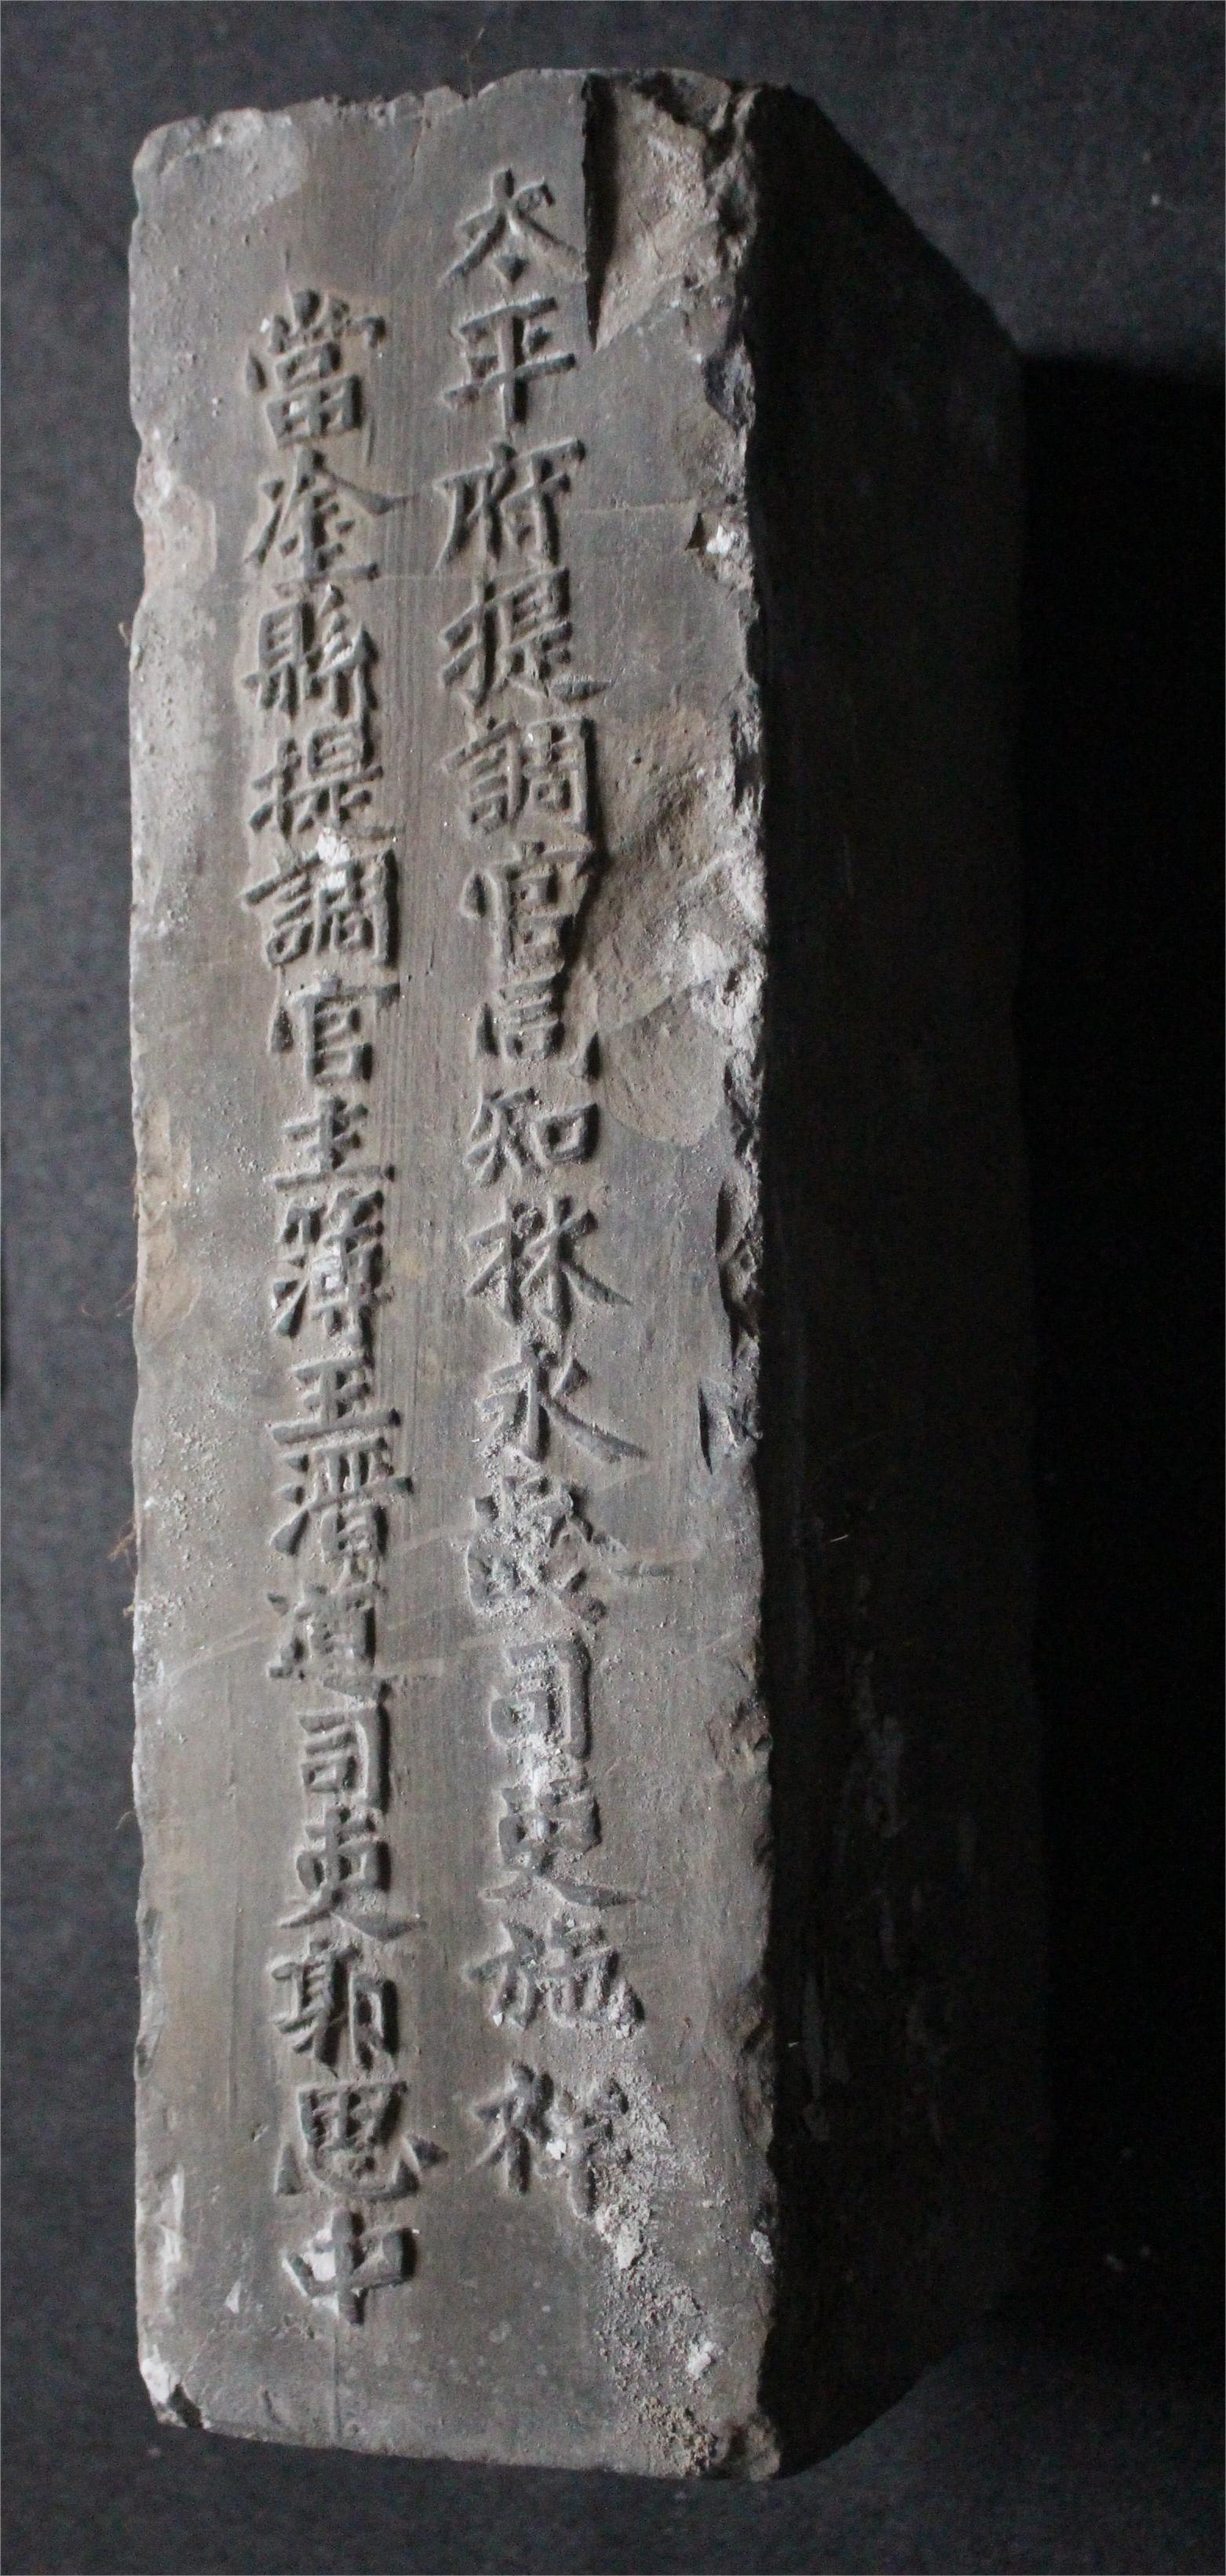 太平府提調官同知林永司吏施
當塗縣提調官主簿王道司吏思中